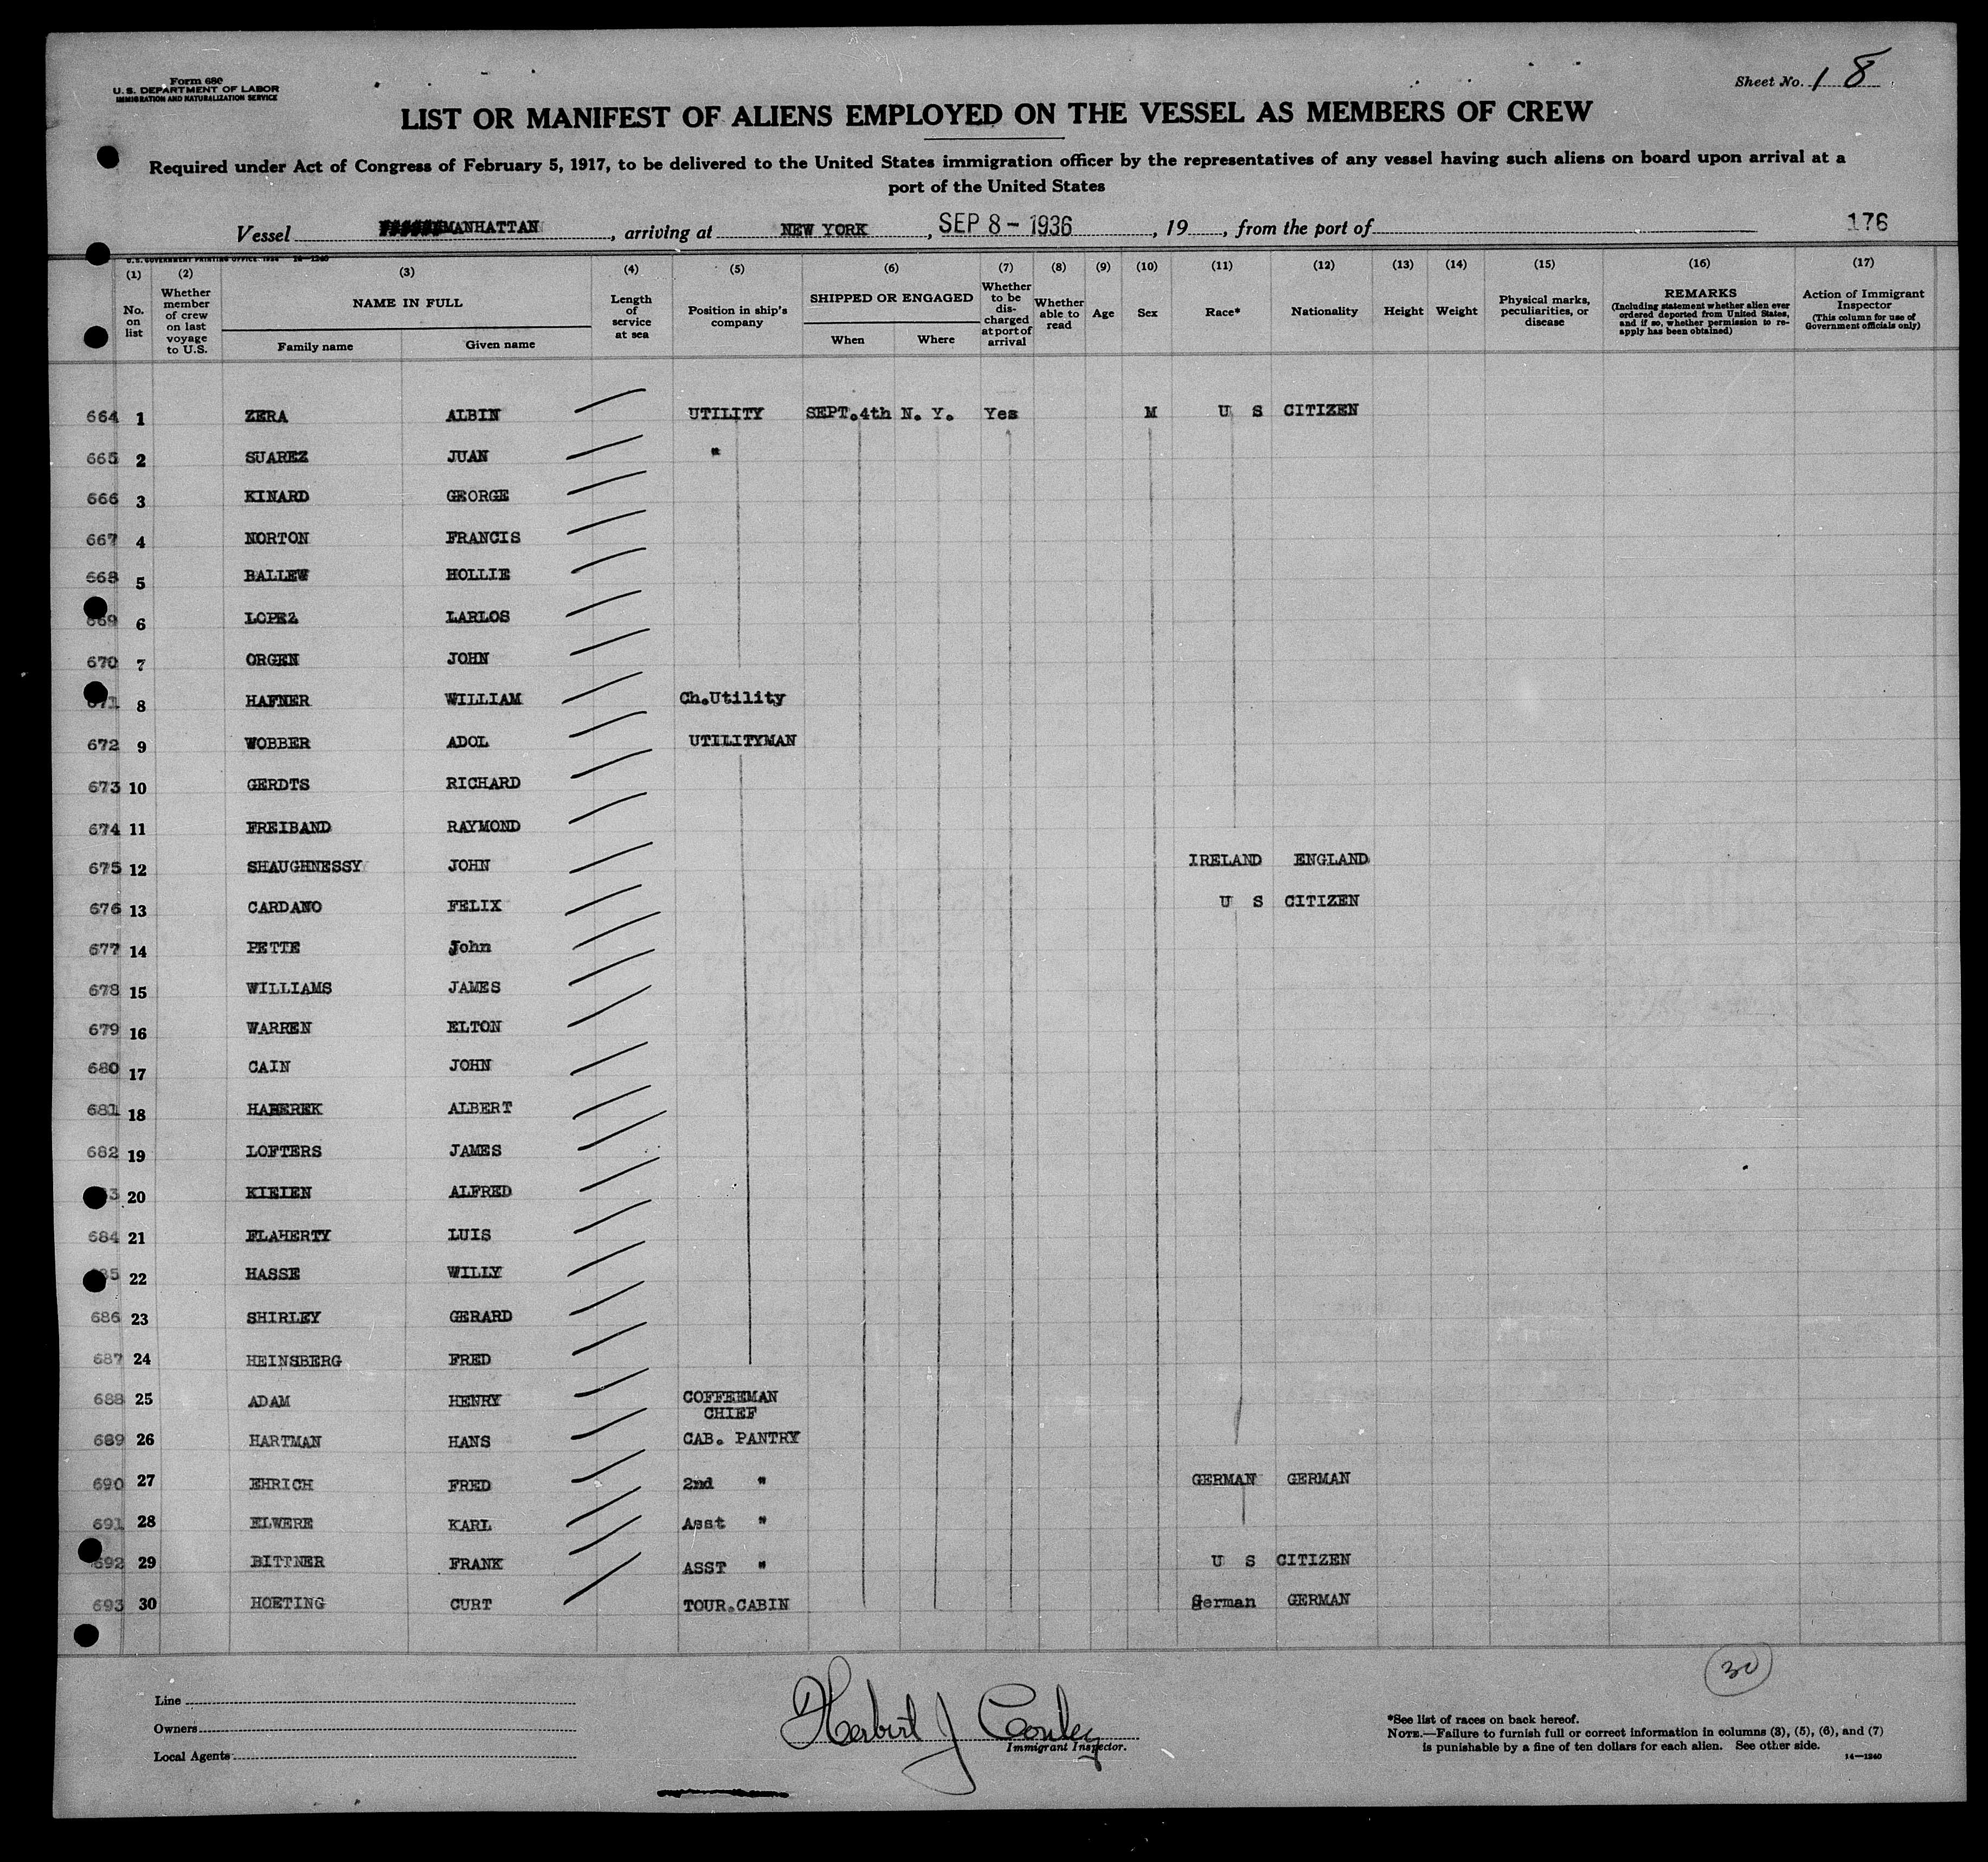 Form 680
U. S. DEPARTMENT OF LABOR
IMMIGRATION AND NATURALIZATION SERVICE
Sheet No. 18
LIST OR MANIFEST OF ALIENS EMPLOYED ON THE VESSEL AS MEMBERS OF CREW
Required under Act of Congress of February 5, 1917, to be delivered to the United States immigration officer by the representatives of any vessel having such aliens on board upon arrival at a
port of the United States
Vessel MANHATTAN, arriving at NEW YORK, SEP 8 - 1936, 19, from the port of 176
(1) (2) (3) (4) (5) (6) (7) (8) (9) (10) (11) (12) (13) (14) (15) (16) (17)
No. on list
Whether member of crew on last voyage to U.S.
NAME IN FULL
Family name
Given name
Length of service at sea
Position in ship's company
SHIPPED OR ENGAGED
When
Where
Whether to be discharged at port of arrival
Whether able to read
Age
Sex
Race*
Nationality
Height
Weight
Physical marks, peculiarities, or disease
REMARKS
(Including statement whether alien ever ordered deported from United States, and if so, whether permission to re-apply has been obtained)
Action of Immigrant Inspector
(This column for use of Government officials only)
664 1 ZERA ALBIN UTILITY SEPT.4th N. Y. Yes M U S CITIZEN
665 2 SUAREZ JUAN "
666 3 KINARD GEORGE
667 4 NORTON FRANCIS
668 5 BALLEW HOLLIE
669 6 LOPEZ LARLOS
670 7 ORGEN JOHN
671 8 HAFNER WILLIAM Ch.Utility
672 9 WOBBER ADOL UTILITYMAN
673 10 GERDTS RICHARD
674 11 FREIBAND RAYMOND
675 12 SHAUGHNESSY JOHN IRELAND ENGLAND
676 13 CARDANO FELIX U S CITIZEN
677 14 PETTE John
678 15 WILLIAMS JAMES
679 16 WARREN ELTON
680 17 CAIN JOHN
681 18 HABEREK ALBERT
682 19 LOFTERS JAMES
3 20 KIEIEN ALFRED
684 21 FLAHERTY LUIS
85 22 HASSE WILLY
686 23 SHIRLEY GERARD
687 24 HEINSBERG FRED
688 25 ADAM HENRY COFFEEMAN
CHIEF
689 26 HARTMAN HANS CAB. PANTRY
690 27 EHRICH FRED 2nd " GERMAN GERMAN
691 28 ELWERE KARL Asst "
692 29 BITTNER FRANK ASST " U S CITIZEN
693 30 HOETING CURT TOUR.CABIN German GERMAN
30
Line
Owners
Local Agents
Herbert J Conley
Immigrant Inspector.
*See list of races on back hereof.
NOTE.—Failure to furnish full or correct information in columns (3), (5), (6), and (7)
is punishable by a fine of ten dollars for each alien. See other side.
14—1240